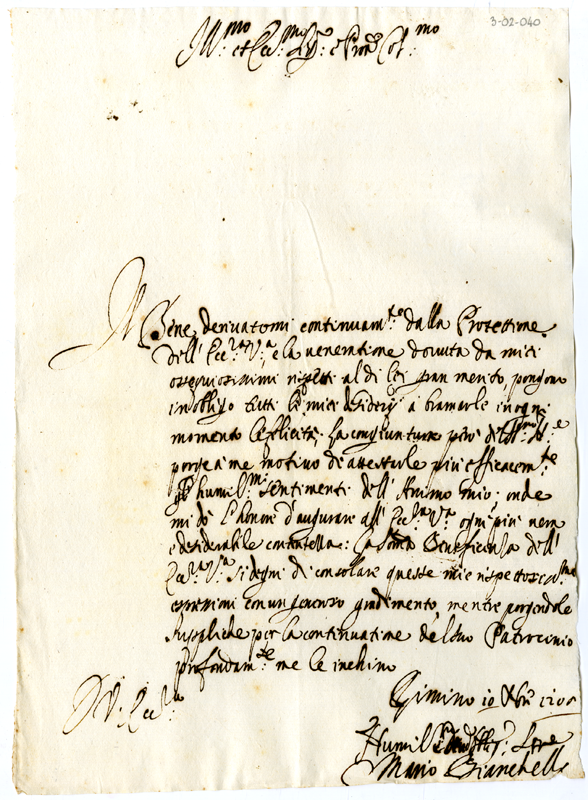 3-02-040
Ill:mo et Ecc:mo Sig:r e Pron Col:mo
Il Bene derivatomi continuam:te dalla Protettione
dell' Ecc:za V:a e la veneratione dovuta da miei
ossequiosissimi rispetti al di Lei gran merito, pongono
in obbligo tutti li miei desiderij a bramarle in ogni
momento le felicità; la congiuntura però del
porge a me motivo di attestarle più efficacem:te
gl' humil:mi sentimenti dell' Animo mio; onde
mi dò l'honore d'augurare all' Ecc:za V:a ogni più vera
e desiderabile contentezza: la somma Beneficenza dell'
Ecc:za V:a si degni di consolare queste mie rispettosiss:me
espressioni con un generoso gradimento, mentre porgendole
suppliche per la continuatione del suo Patrocinio
profondam:te me le inchino
D V: Ecc:za
Gimino 10 Xbre 1705
Humil:mo Ser:re
Mario Bianchelli